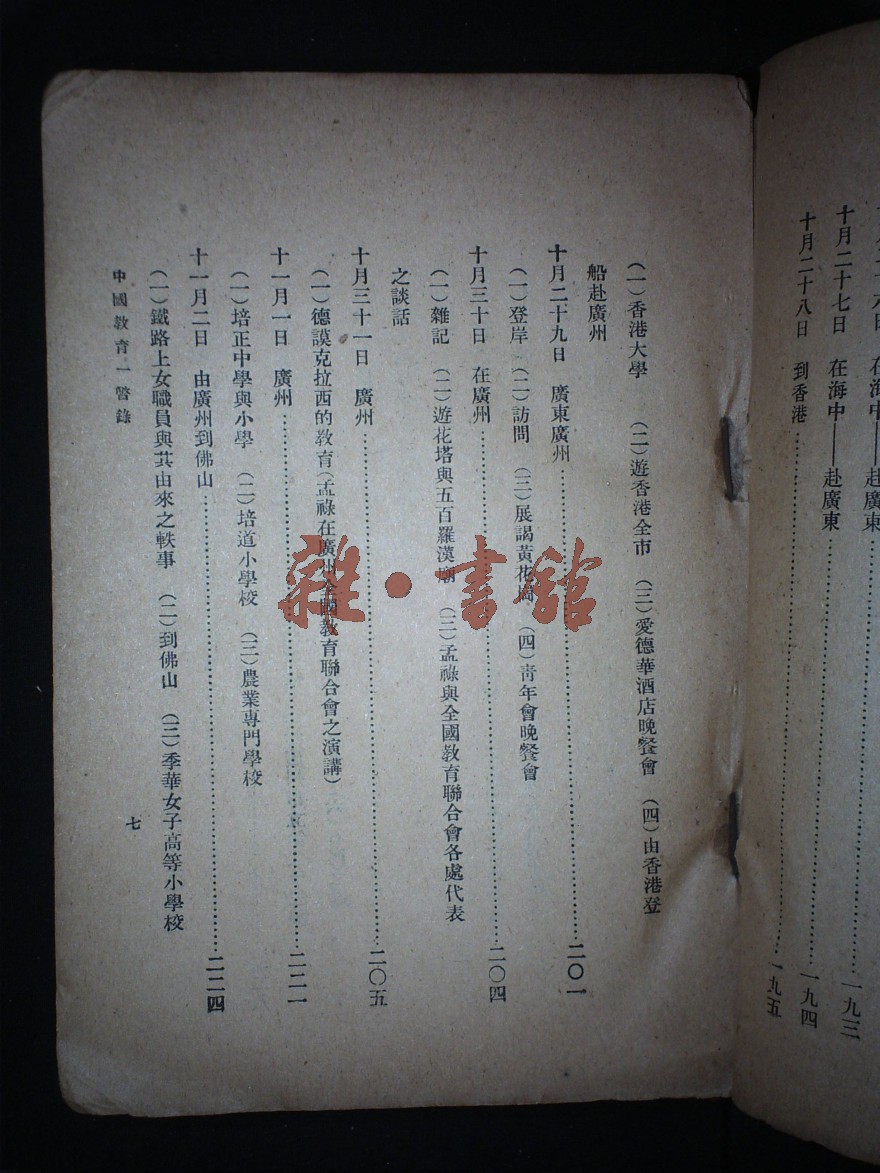 十月二十六日 在海中——赴廣東……一九三
十月二十七日 在海中——赴廣東……一九四
十月二十八日 到香港……一九五
(一)香港大學 (二)遊香港全市 (三)愛德華酒店晚餐會 (四)由香港登
船赴廣州
十月二十九日 廣東廣州……二〇一
(一)登岸 (二)訪問 (三)展謁黃花岡 (四)青年會晚餐會
十月三十日 在廣州……二〇四
(一)雜記 (二)遊花塔與五百羅漢廟 (三)孟祿與全國教育聯合會各處代表
之談話
十月三十一日 廣州……二〇五
(一)德謨克拉西的教育(孟祿在廣州全國教育聯合會之演講)
十一月一日 廣州……二二一
(一)培正中學與小學 (二)培道小學校 (三)農業專門學校
十一月二日 由廣州到佛山……二二四
(一)鐵路上女職員與其由來之軼事 (二)到佛山 (三)季華女子高等小學校
中國教育一瞥錄
七
雜·書館